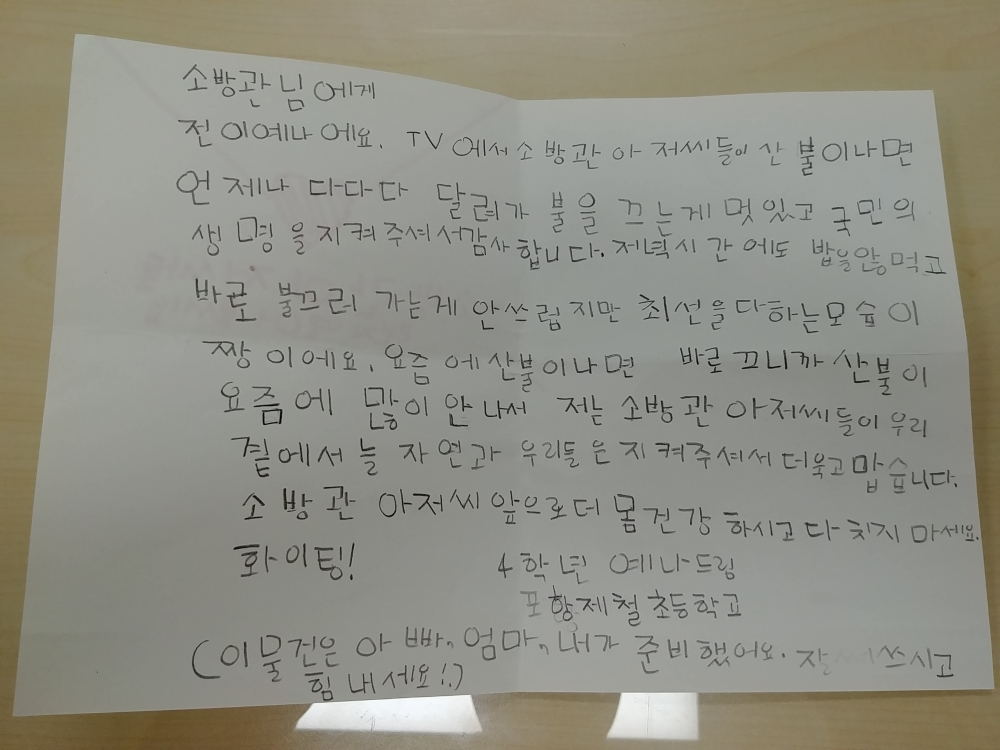 소방관님에게
전 이예나에요. TV에서 소방관 아저씨들이 산불이나면
언제나 다다다 달려가 불을 끄는게 멋있고 국민의
생명을 지켜주셔서감사합니다. 저녁시간에도 밥을않먹고
바로 불끄러 가는게 안쓰럽지만 최선을다하는모습이
짱이에요. 요즘에산불이나면 바로끄니까 산불이
요즘에 많이 안나서 저는 소방관 아저씨들이우리
곁에서 늘 자연과 우리들은지켜주셔서 더욱고맙습니다.
소방관 아저씨 앞으로더 몸건강 하시고다치지 마세요.
화이팅!
4학년 예나드림
포항제철초등학교
(이물건은 아빠, 엄마, 내가 준비했어요. 잘 쓰시고
힘내세요!)